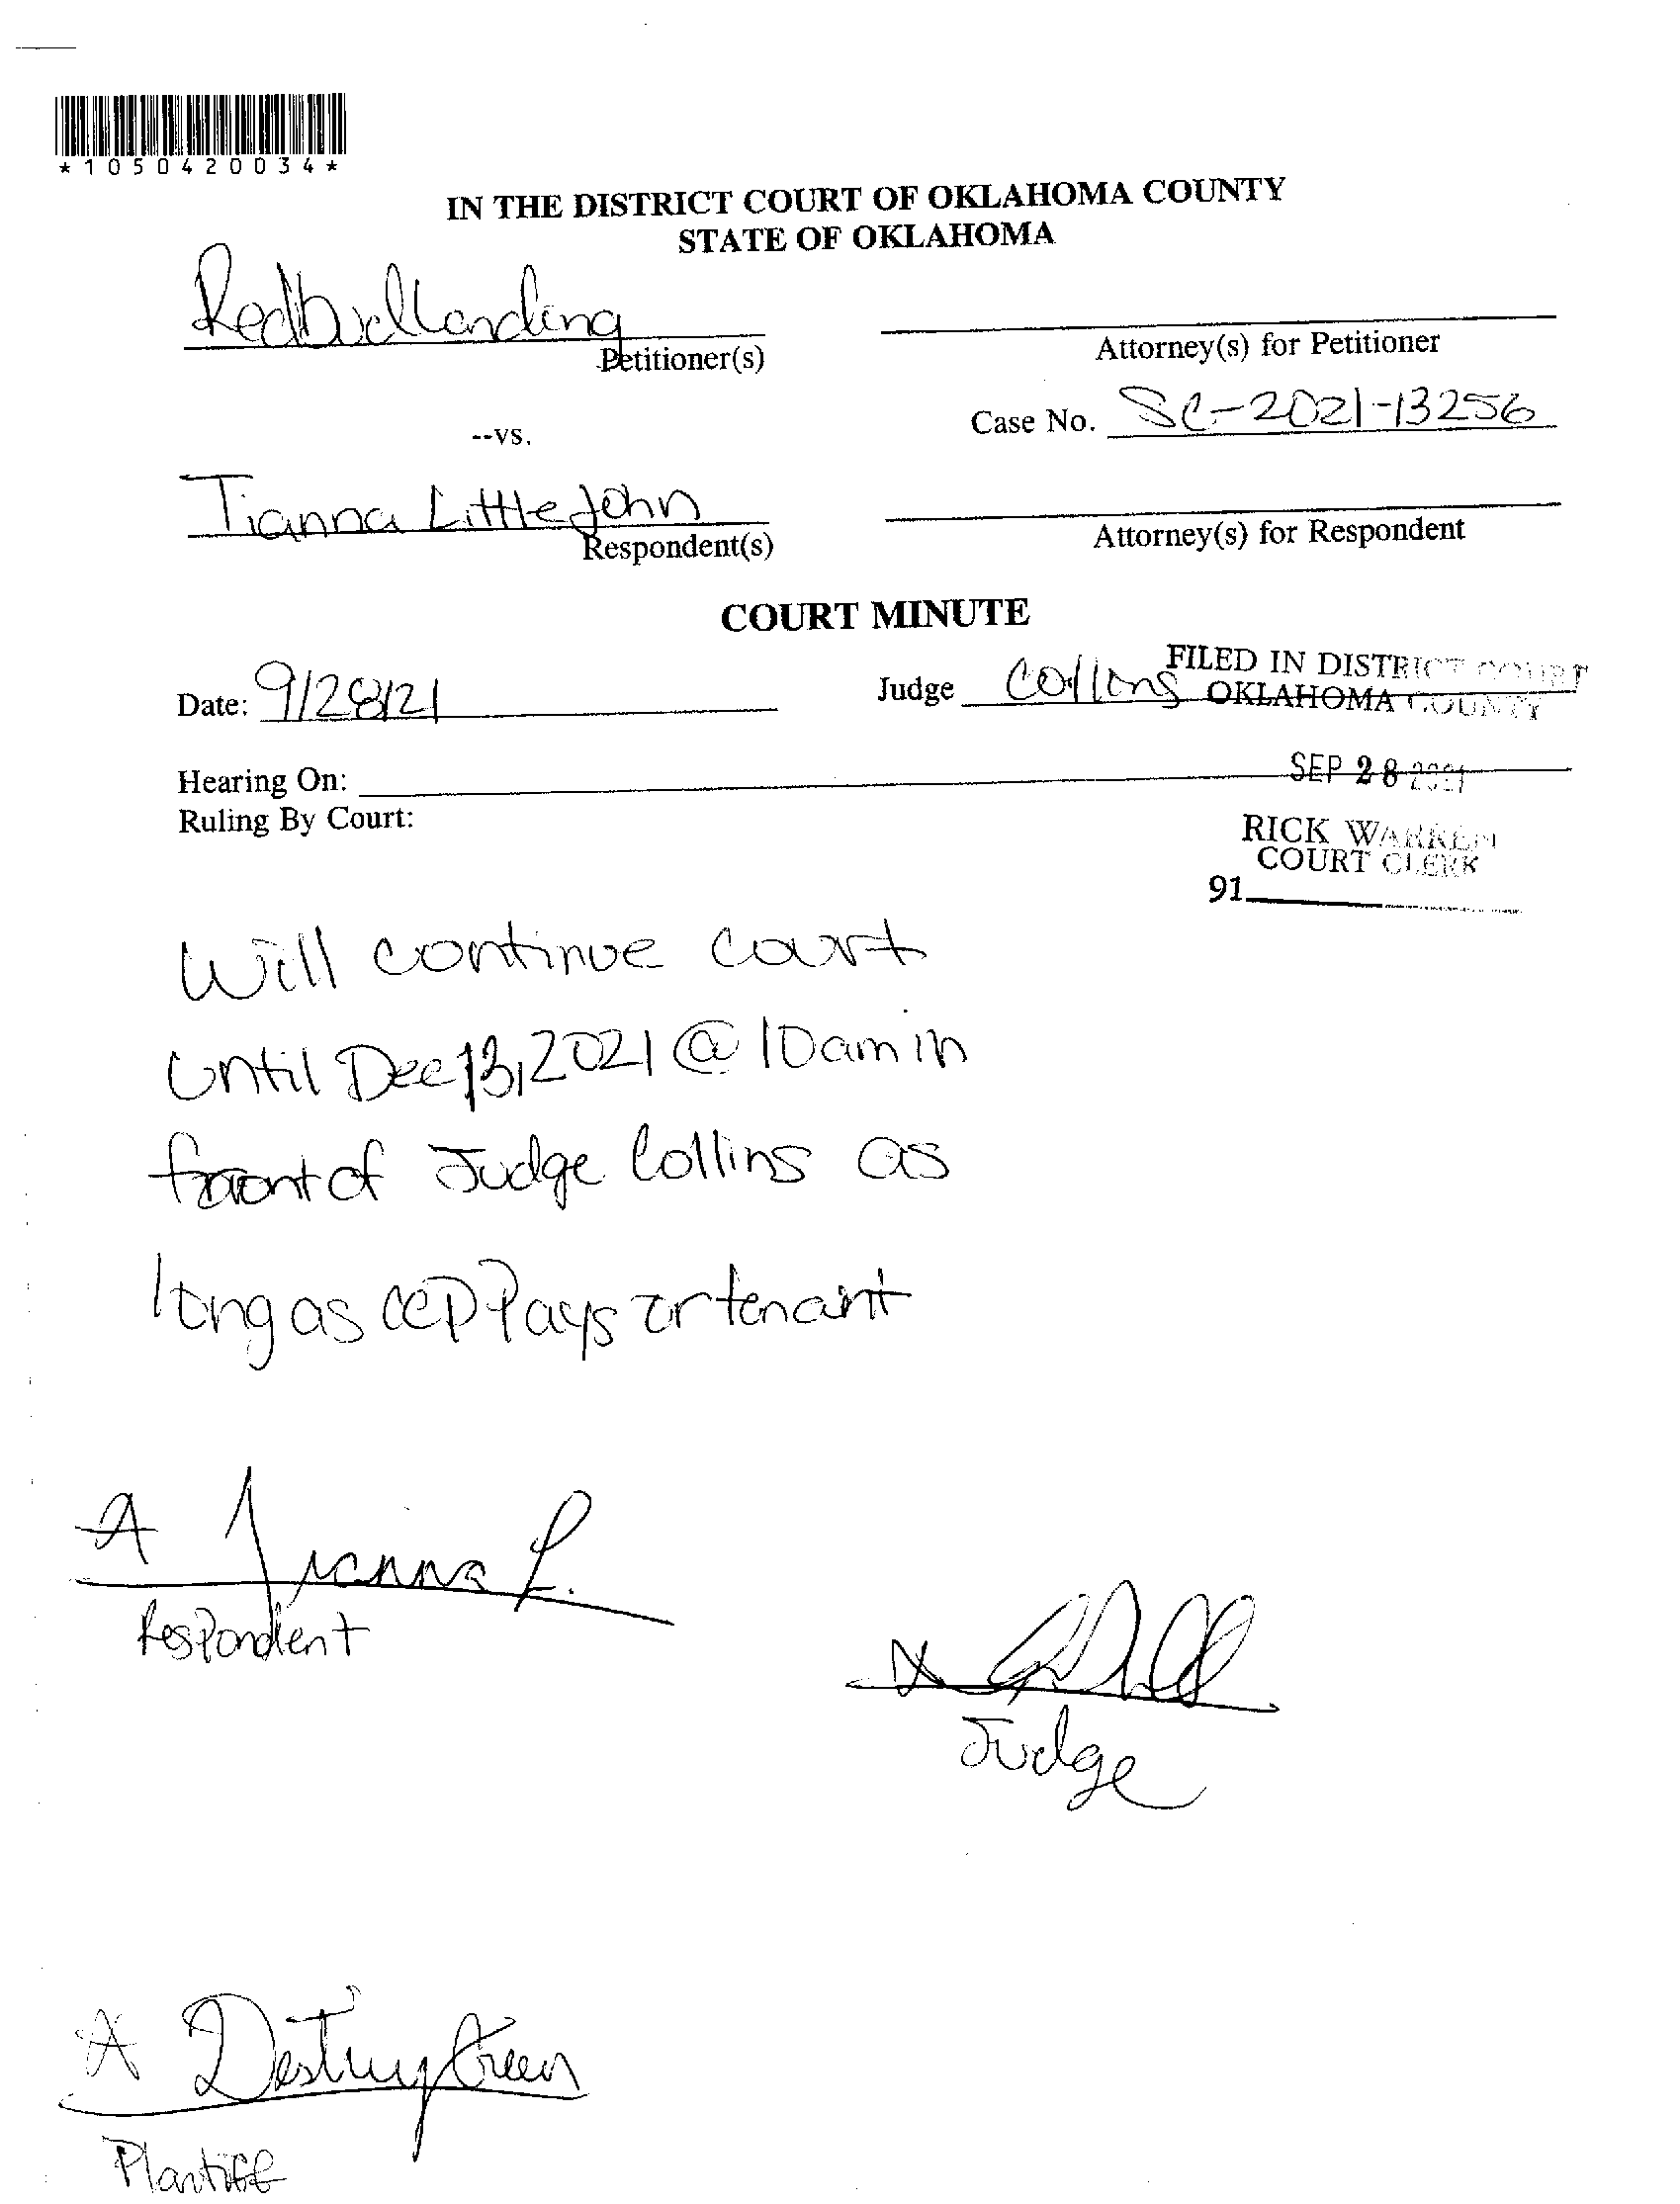 *1050420034*
IN THE DISTRICT COURT OF OKLAHOMA COUNTY
STATE OF OKLAHOMA
Redbud Landing
Petitioner(s)
Attorney(s) for Petitioner
Case No. SC-2021-13256
--vs.
Tianna LittleJohn
Respondent(s)
Attorney(s) for Respondent
COURT MINUTE
Date: 9/28/21
Judge Collins
FILED IN DISTRICT COURT
OKLAHOMA COUNTY
Hearing On:
SEP 28 2021
Ruling By Court:
RICK WARREN
COURT CLERK
91
Will continue court
until Dec 13, 2021 @ 10am in
front of Judge Collins as
long as CCP Pays or tenant
Tianna L.
Respondent
Judge
Destiny Green
Plantiff